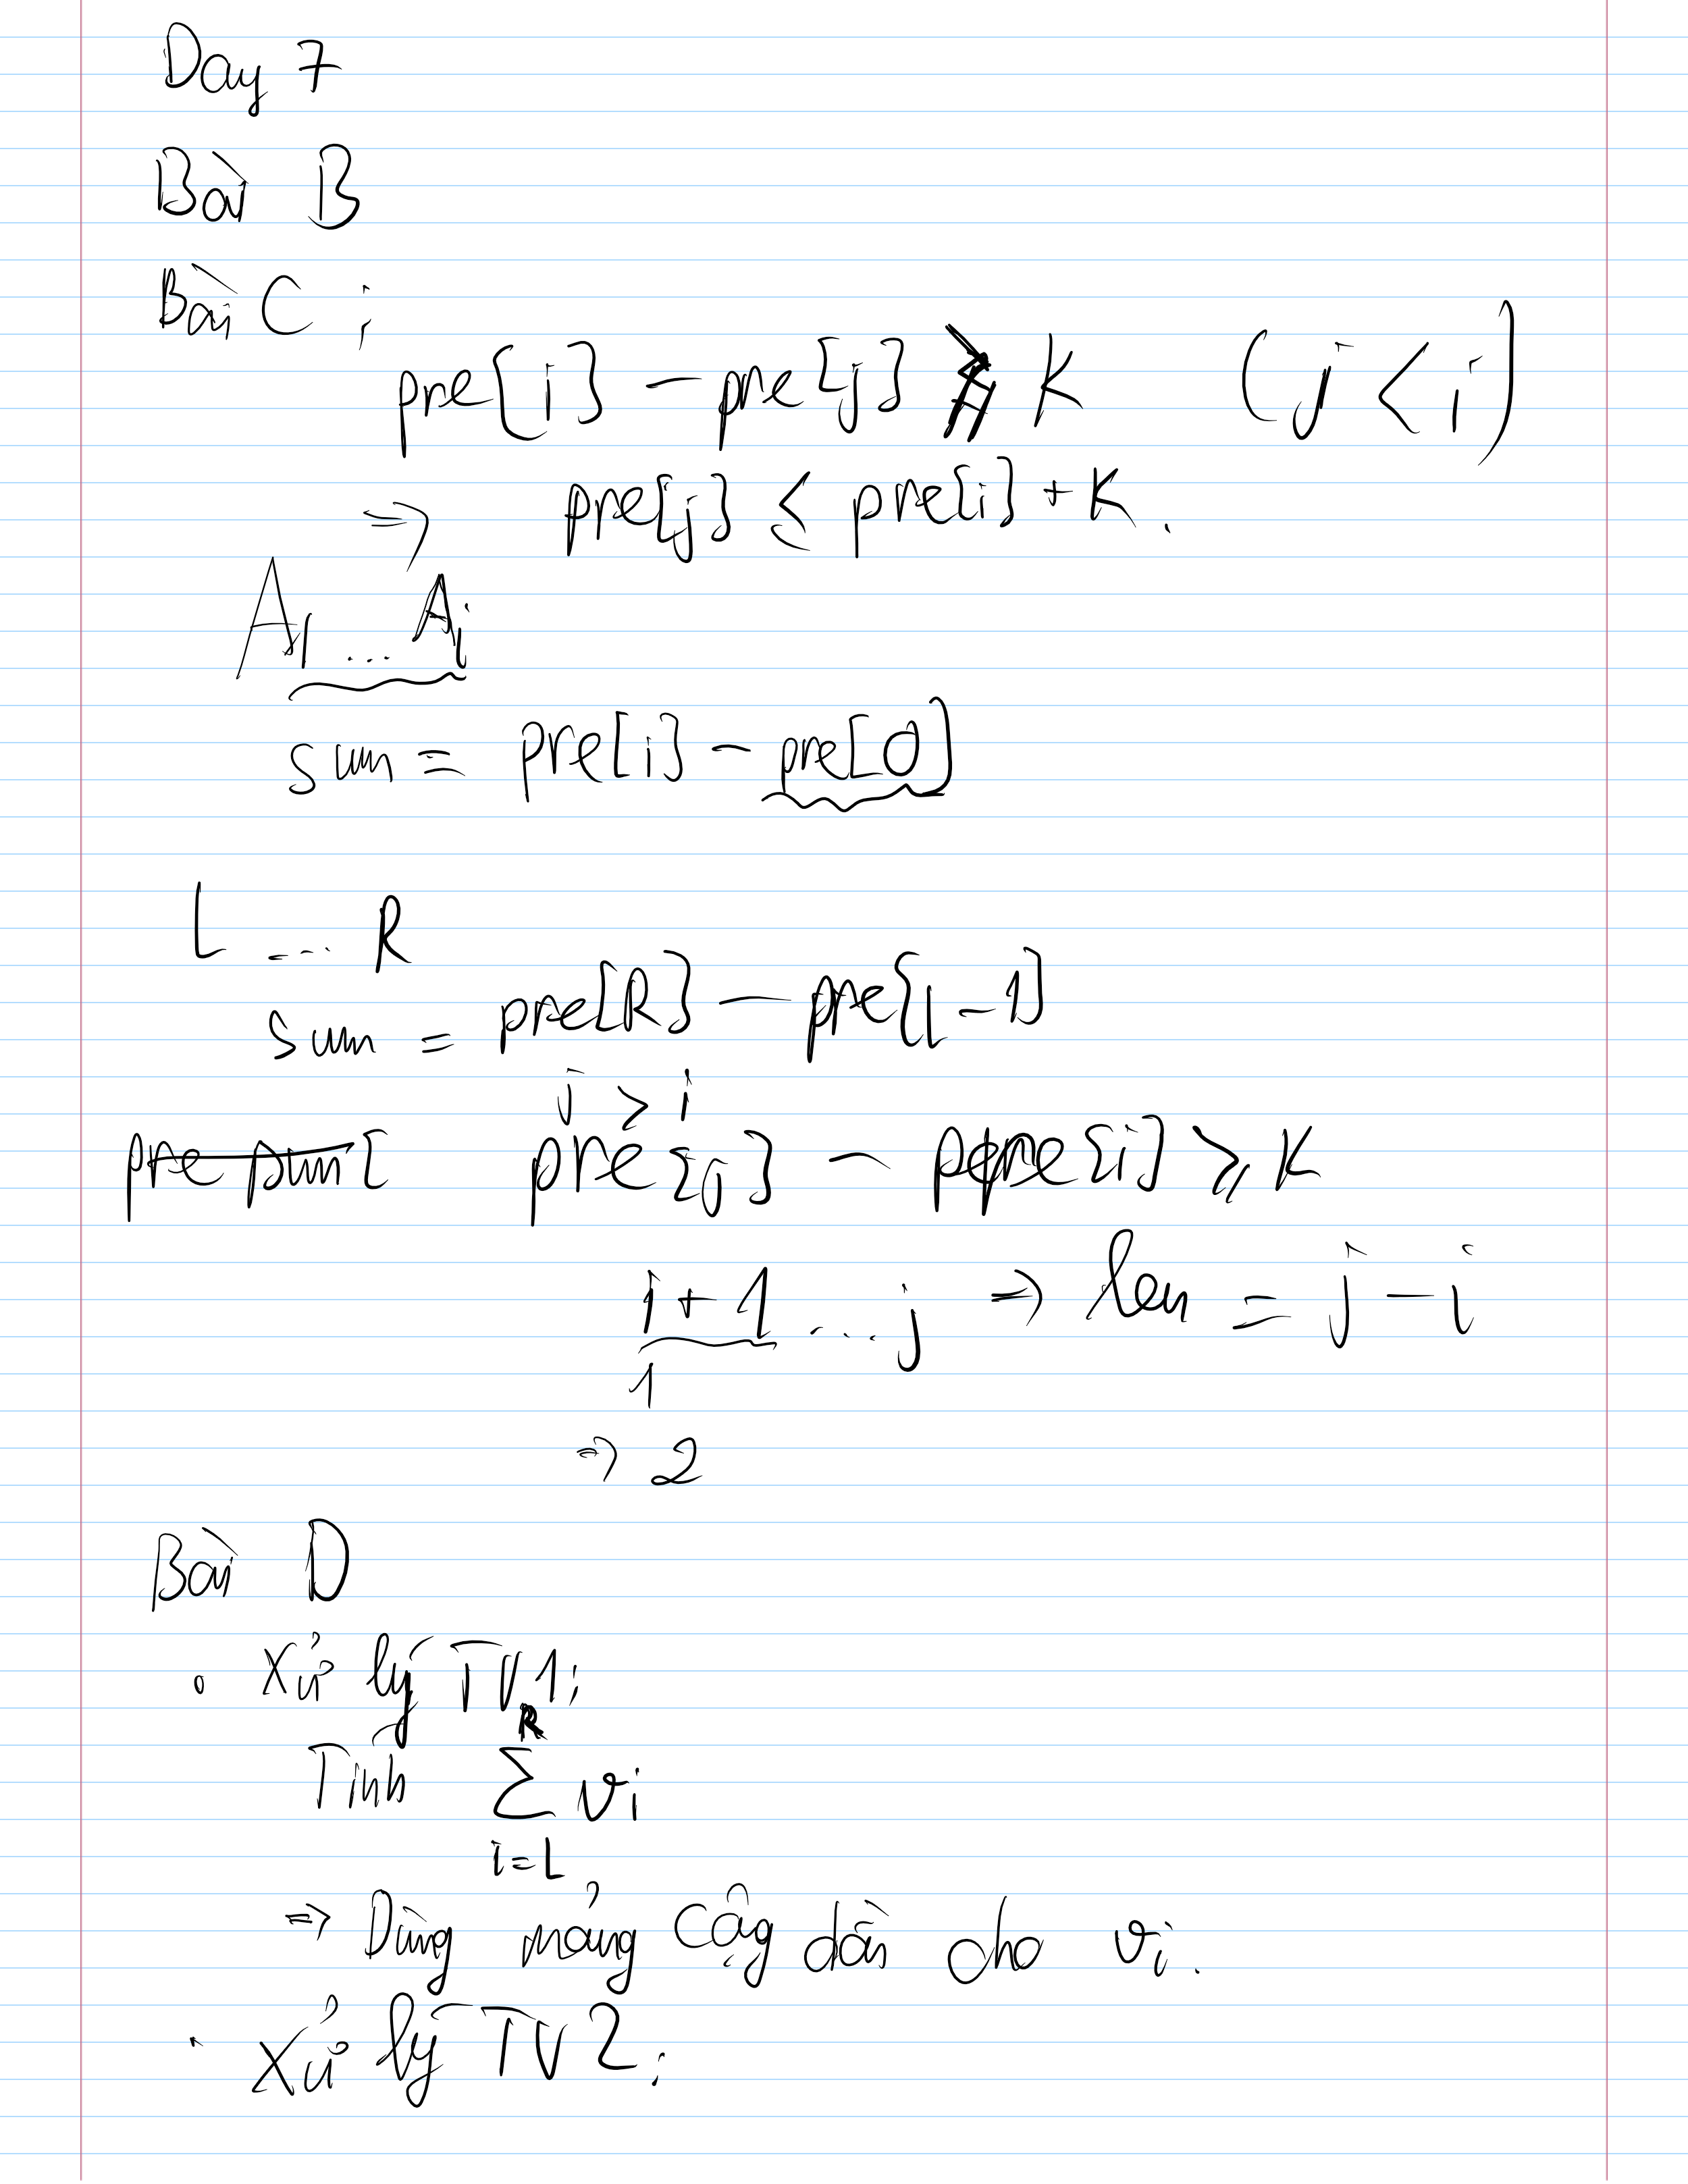 Day 7
Bài B
Bài C :
pre[i] - pre[j] K (j < i)
=> pre[j] ≤ pre[i] + K.
A1 ... Ai
sum = pre[i] - pre[0]
L ... R
sum = pre[R] - pre[L-1]
j > i
pre[j] - pre[i] ≥ K
i + 1 ... j => len = j - i
1
=> 2
Bài D
• Xử lý TV1:
R
Tính Σ vi
i=L
=> Dùng mảng cộng dồn cho vi.
• Xử lý TV2: